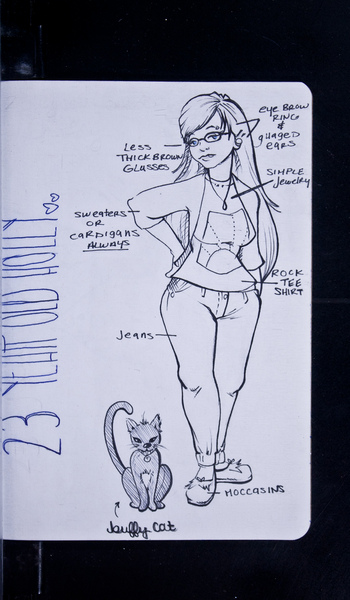 23 YEAR OLD HOLLY
EYE BROW
RING
&
gUAGED
EARS
LESS
THICK BROWN
GLASSES
SIMPLE
Jewelry
SWEATERS
OR
CARDIGANS
ALWAYS
ROCK
TEE
SHIRT
Jeans
MOCCASINS
buffy cat